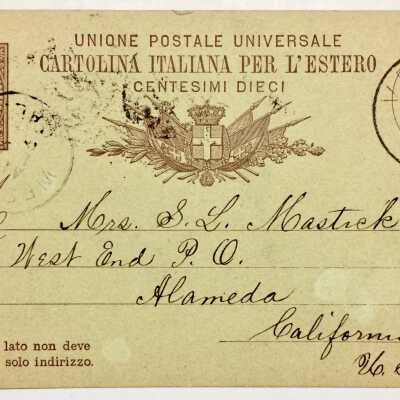 UNIONE POSTALE UNIVERSALE
CARTOLINA ITALIANA PER L'ESTERO
CENTESIMI DIECI
Mrs. S. L. Mastick
West End P. O.
Alameda
California
U. S.
lato non deve
solo indirizzo.